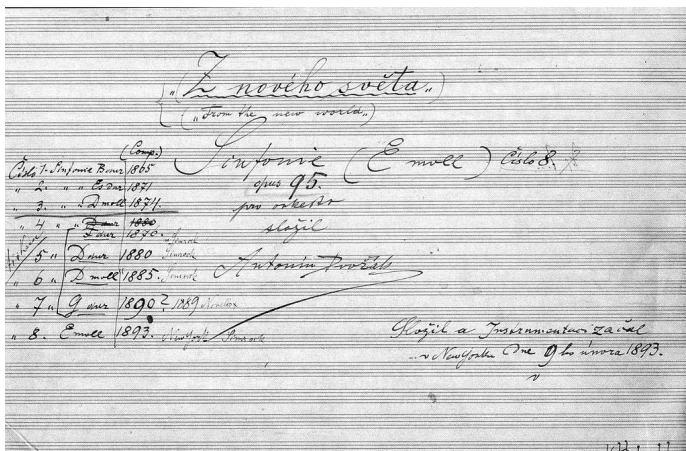 „Z nového světa„
(„From the new world„)
Sinfonie (E moll) Číslo 8.
opus 95.
pro orkestr
složil
Antonín Dvořák
(Comp.)
Číslo 1. Sinfonie B dur 1865
„ 2. „ „ Es dur 1871
„ 3. „ „ D moll 1874.
„ 4 „ „ D dur 1880
F dur 1876.
„ 5 „ D dur 1880 Simrock
„ 6 „ D moll 1885. Simrock
„ 7 „ G dur 1890? 1889 Novello
„ 8. E moll 1893. New York Simrock
Složil a Instrumentaci začal
v New Yorku Dne 9ho února 1893.